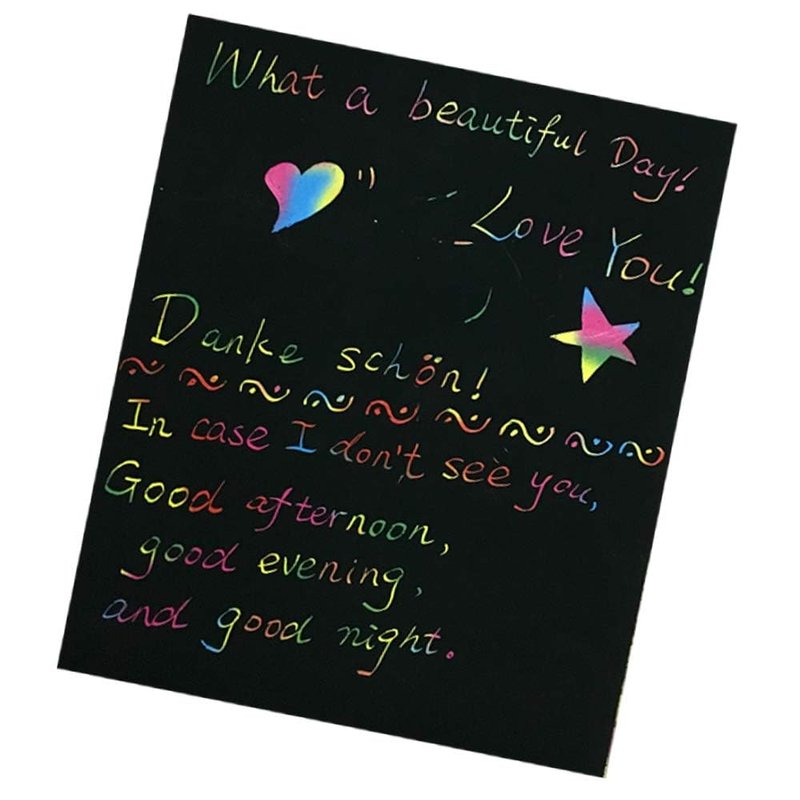 What a beautiful Day!
Love You!
Danke schön!
In case I don't see you,
Good afternoon,
good evening,
and good night.